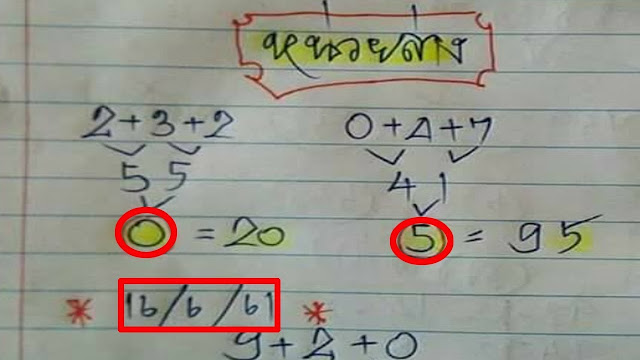 หน่วยล่าง
2+3+2 0+4+7
5 5 4 1
0 = 20 5 = 95
* 16/6/61 *
9+2+0